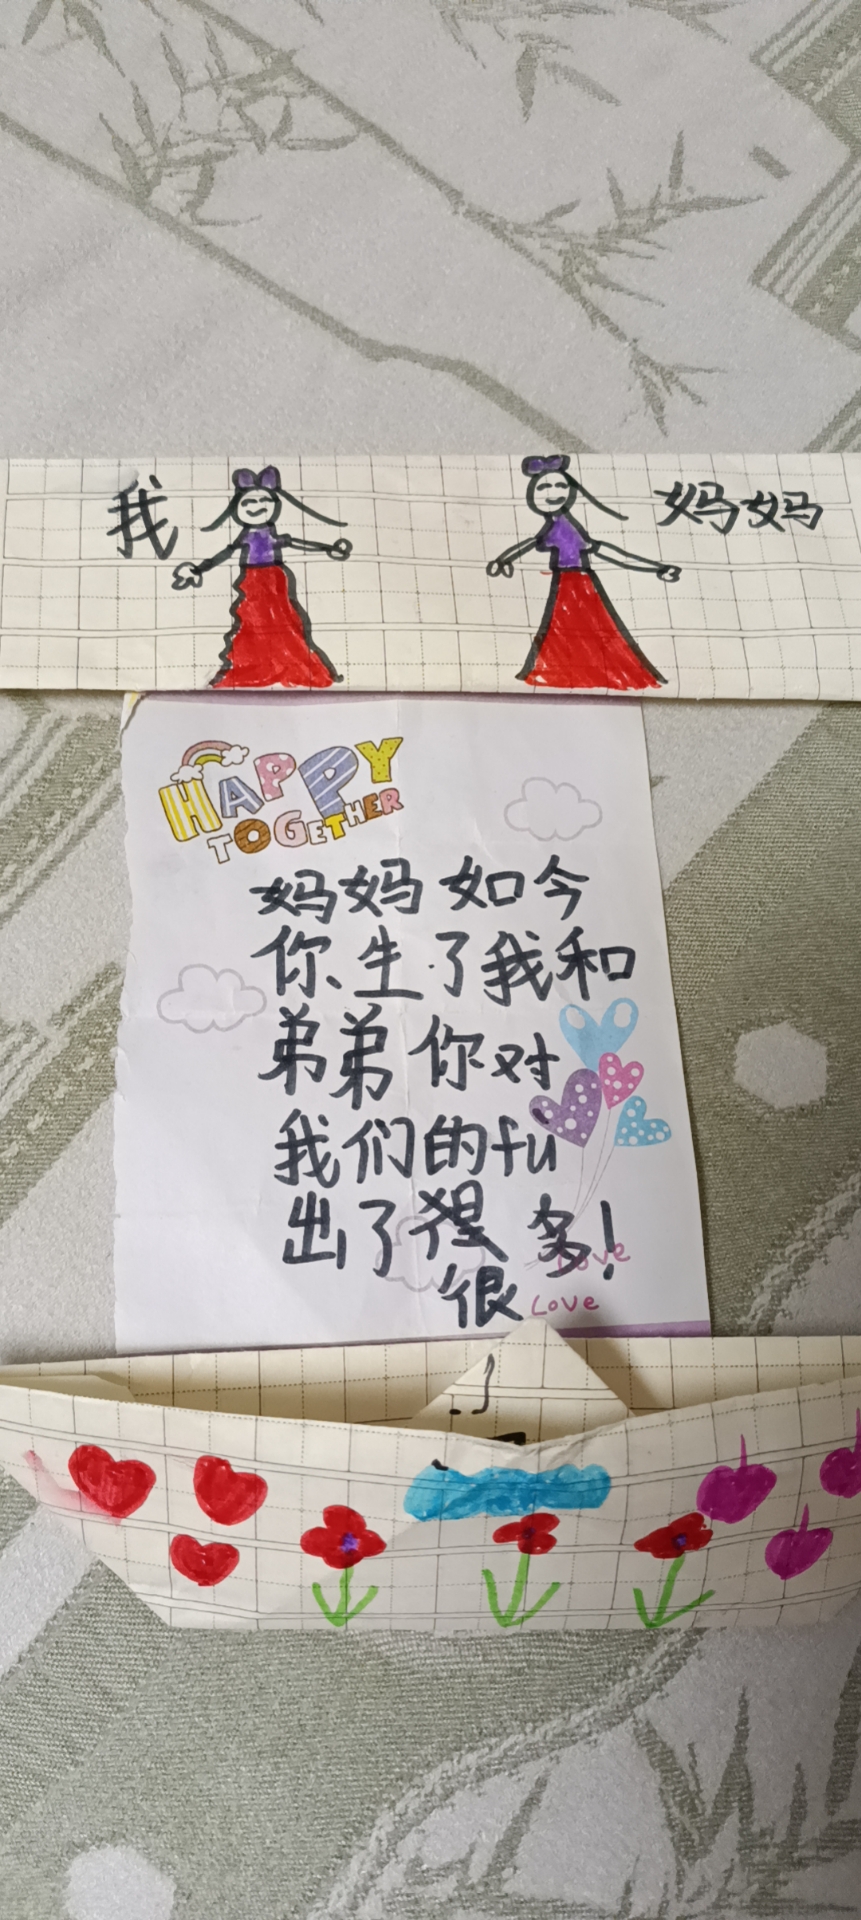 我 妈妈
HAPPY
TOGETHER
妈妈 如今
你生了我和
弟弟你对
我们的fù
出了 多!
很
Love
Love